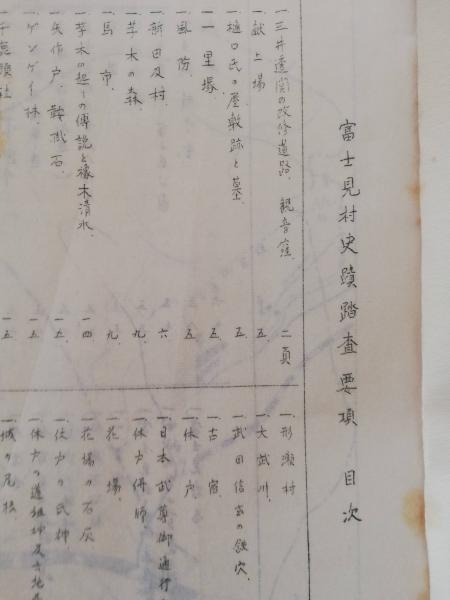 富士見村史蹟踏査要項 目次
一、三井透関の改修道路、観音窪、 二頁
一、献上場 五、
一、樋口氏の屋敷跡と墓、 五、
一、一里塚 五、
一、風防、 五、
一、新田及村、 六
一、芋木の森、 九、
一、馬市、 九
一、芋木の起りの傳説と橡木清水、 一四
一、矢作戸、鞍掛石、 一五、
一、ゲンゲイ林、 一五
一、千鹿頭社 一五
一、形瀬村
一、大武川、
一、武田信玄の鉄穴、
一、古宿、
一、休戸
一、日本武尊御通行
一、休戸
一、花場、
一、花場の石灰
一、休戸の氏神、
一、休戸の道祖神及
一、城の尾根